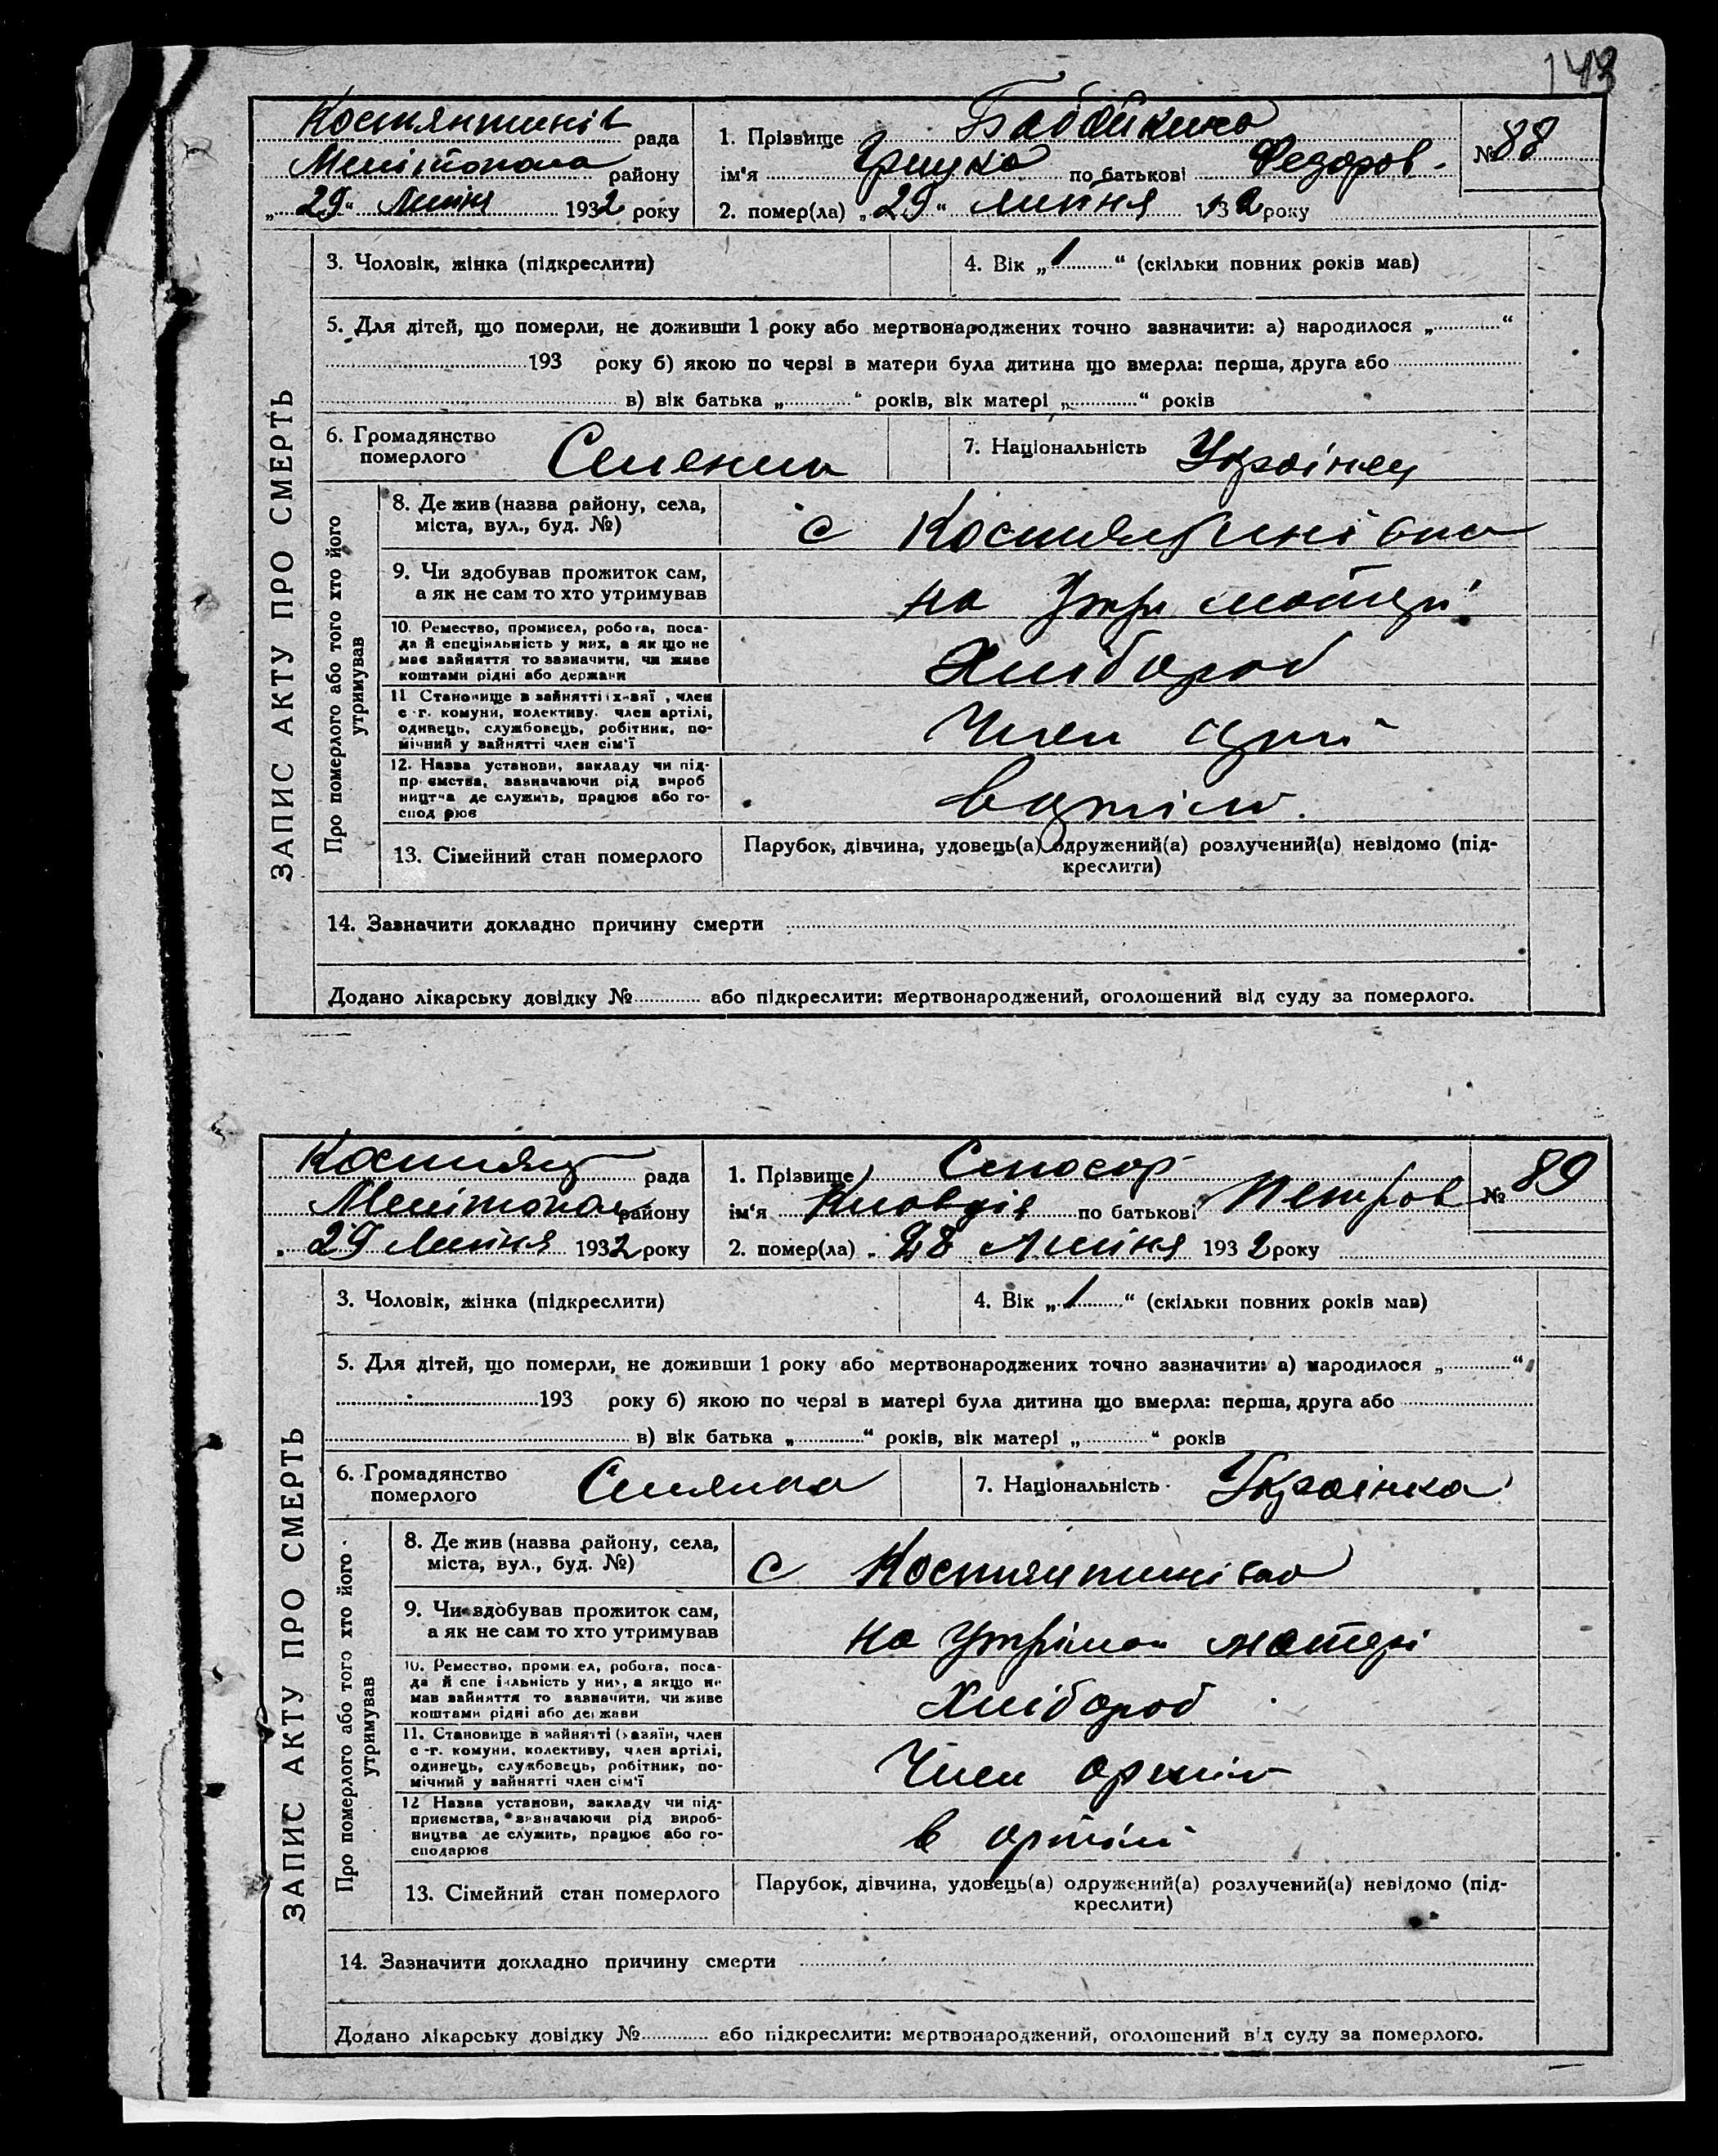 143
Костянтинів рада
Мелітопола району
„29“ Липня 1932 року
1. Прізвище
ім'я Грицко по батькові Федоров
№ 88
2. помер(ла) „29“ липня 1932 року
ЗАПИС АКТУ ПРО СМЕРТЬ
3. Чоловік, жінка (підкреслити)
4. Вік „1“ (скільки повних років мав)
5. Для дітей, що померли, не доживши 1 року або мертвонароджених точно зазначити: а) народилося „ “
193 року б) якою по черзі в матери була дитина що вмерла: перша, друга або
в) вік батька „ “ років, вік матері „ “ років
6. Громадянство
померлого
7. Національність Українец
Про померлого або того хто його
утримував
8. Де жив (назва району, села,
міста, вул., буд. №)
с Костянтинівка
9. Чи здобував прожиток сам,
а як не сам то хто утримував
на утри матері
10. Ремество, промисел, робота, поса-
да й спеціяльність у них, а як що не
має зайняття то зазначити, чи живе
коштами рідні або держави
Хлібороб
11 Становище в зайнятті (хазяї , член
с -г. комуни, колективу. член артілі,
одинець, службовець, робітник, по-
мічний у зайнятті член сім'ї
Член арті
12. Назва установи, закладу чи під-
пр ємства, зазначаючи рід вироб
ництва де служить, працює або го-
спод рює
в артілі
13. Сімейний стан померлого
Парубок, дівчина, удовець(а) одружений(а) розлучений(а) невідомо (під-
креслити)
14. Зазначити докладно причину смерти
Додано лікарську довідку № або підкреслити: мертвонароджений, оголошений від суду за померлого.
Костянт рада
Мелітопол району
„29 Липня 1932 року
1. Прізвище
ім'я по батькові Петров
№ 89
2. помер(ла) „28 Липня 1932 року
ЗАПИС АКТУ ПРО СМЕРТЬ
3. Чоловік, жінка (підкреслити)
4. Вік „1“ (скільки повних років мав)
5. Для дітей, що померли, не доживши 1 року або мертвонароджених точно зазначити: а) народилося „ “
193 року б) якою по черзі в матері була дитина що вмерла: перша, друга або
в) вік батька „ “ років, вік матері „ “ років
6. Громадянство
померлого
7. Національність Українка
Про померлого або того хто його
утримував
8. Де жив (назва району, села,
міста, вул., буд. №)
с Костянтинівка
9. Чи здобував прожиток сам,
а як не сам то хто утримував
на утріман матері
10. Ремество, промисел, робота, поса-
да й спеціяльність у них, а якщо не
мав зайняття то зазначити, чи живе
коштами рідні або держави
Хлібороб
11. Становище в зайнятті (хазяїн, член
с -г. комуни, колективу, член артілі,
одинець, службовець, робітник, по-
мічний у зайнятті член сім'ї
Член артілі
12 Назва установи, закладу чи під-
приємства, зазначаючи рід вироб-
ництва де служить, працює або го-
сподарює
в артілі
13. Сімейний стан померлого
Парубок, дівчина, удовець(а) одружений(а) розлучений(а) невідомо (під-
креслити)
14. Зазначити докладно причину смерти
Додано лікарську довідку № або підкреслити: мертвонароджений, оголошений від суду за померлого.